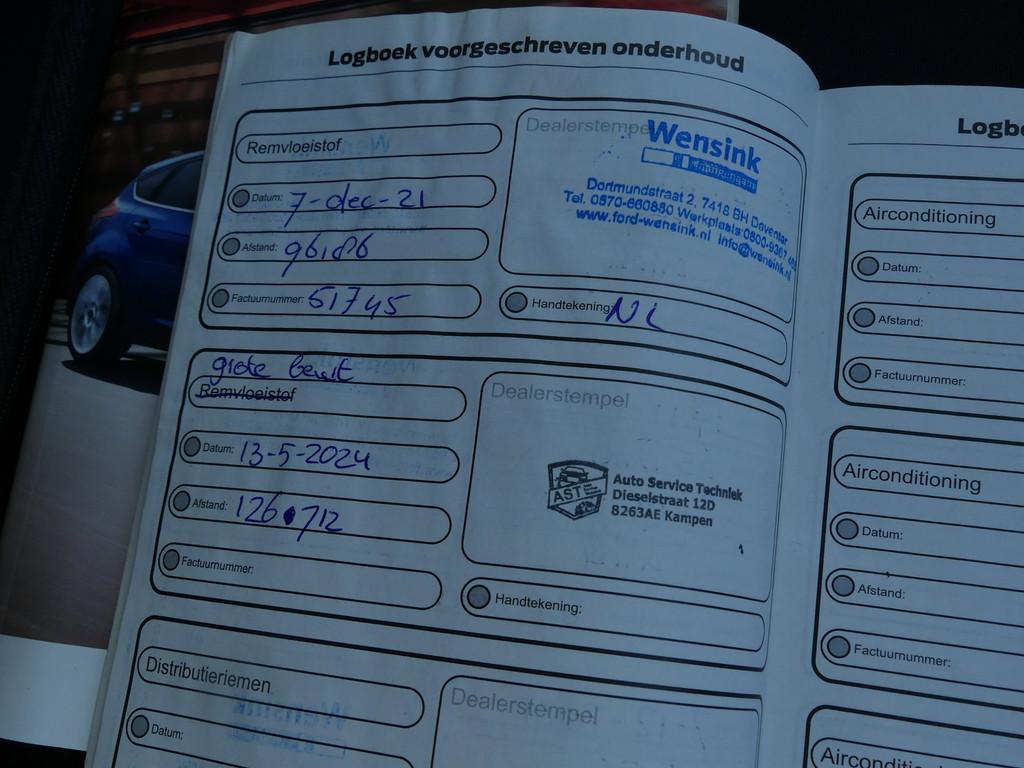 Logboek voorgeschreven onderhoud
Remvloeistof
Datum: 7-dec-21
Afstand: 96186
Factuurnummer: 51745
Dealerstempel
Wensink
Dortmundstraat 2, 7418 BH Deventer
Tel. 0570-660860 Werkplaats 0800-9367
www.ford-wensink.nl info@wensink.nl
Handtekening: NL
grote beurt
Remvloeistof
Datum: 13-5-2024
Afstand: 126.712
Factuurnummer:
Dealerstempel
AST
Auto Service Techniek
Dieselstraat 12D
8263AE Kampen
Handtekening:
Distributieriemen
Datum:
Dealerstempel
Logbo
Airconditioning
Datum:
Afstand:
Factuurnummer:
Airconditioning
Datum:
Afstand:
Factuurnummer:
Airconditi